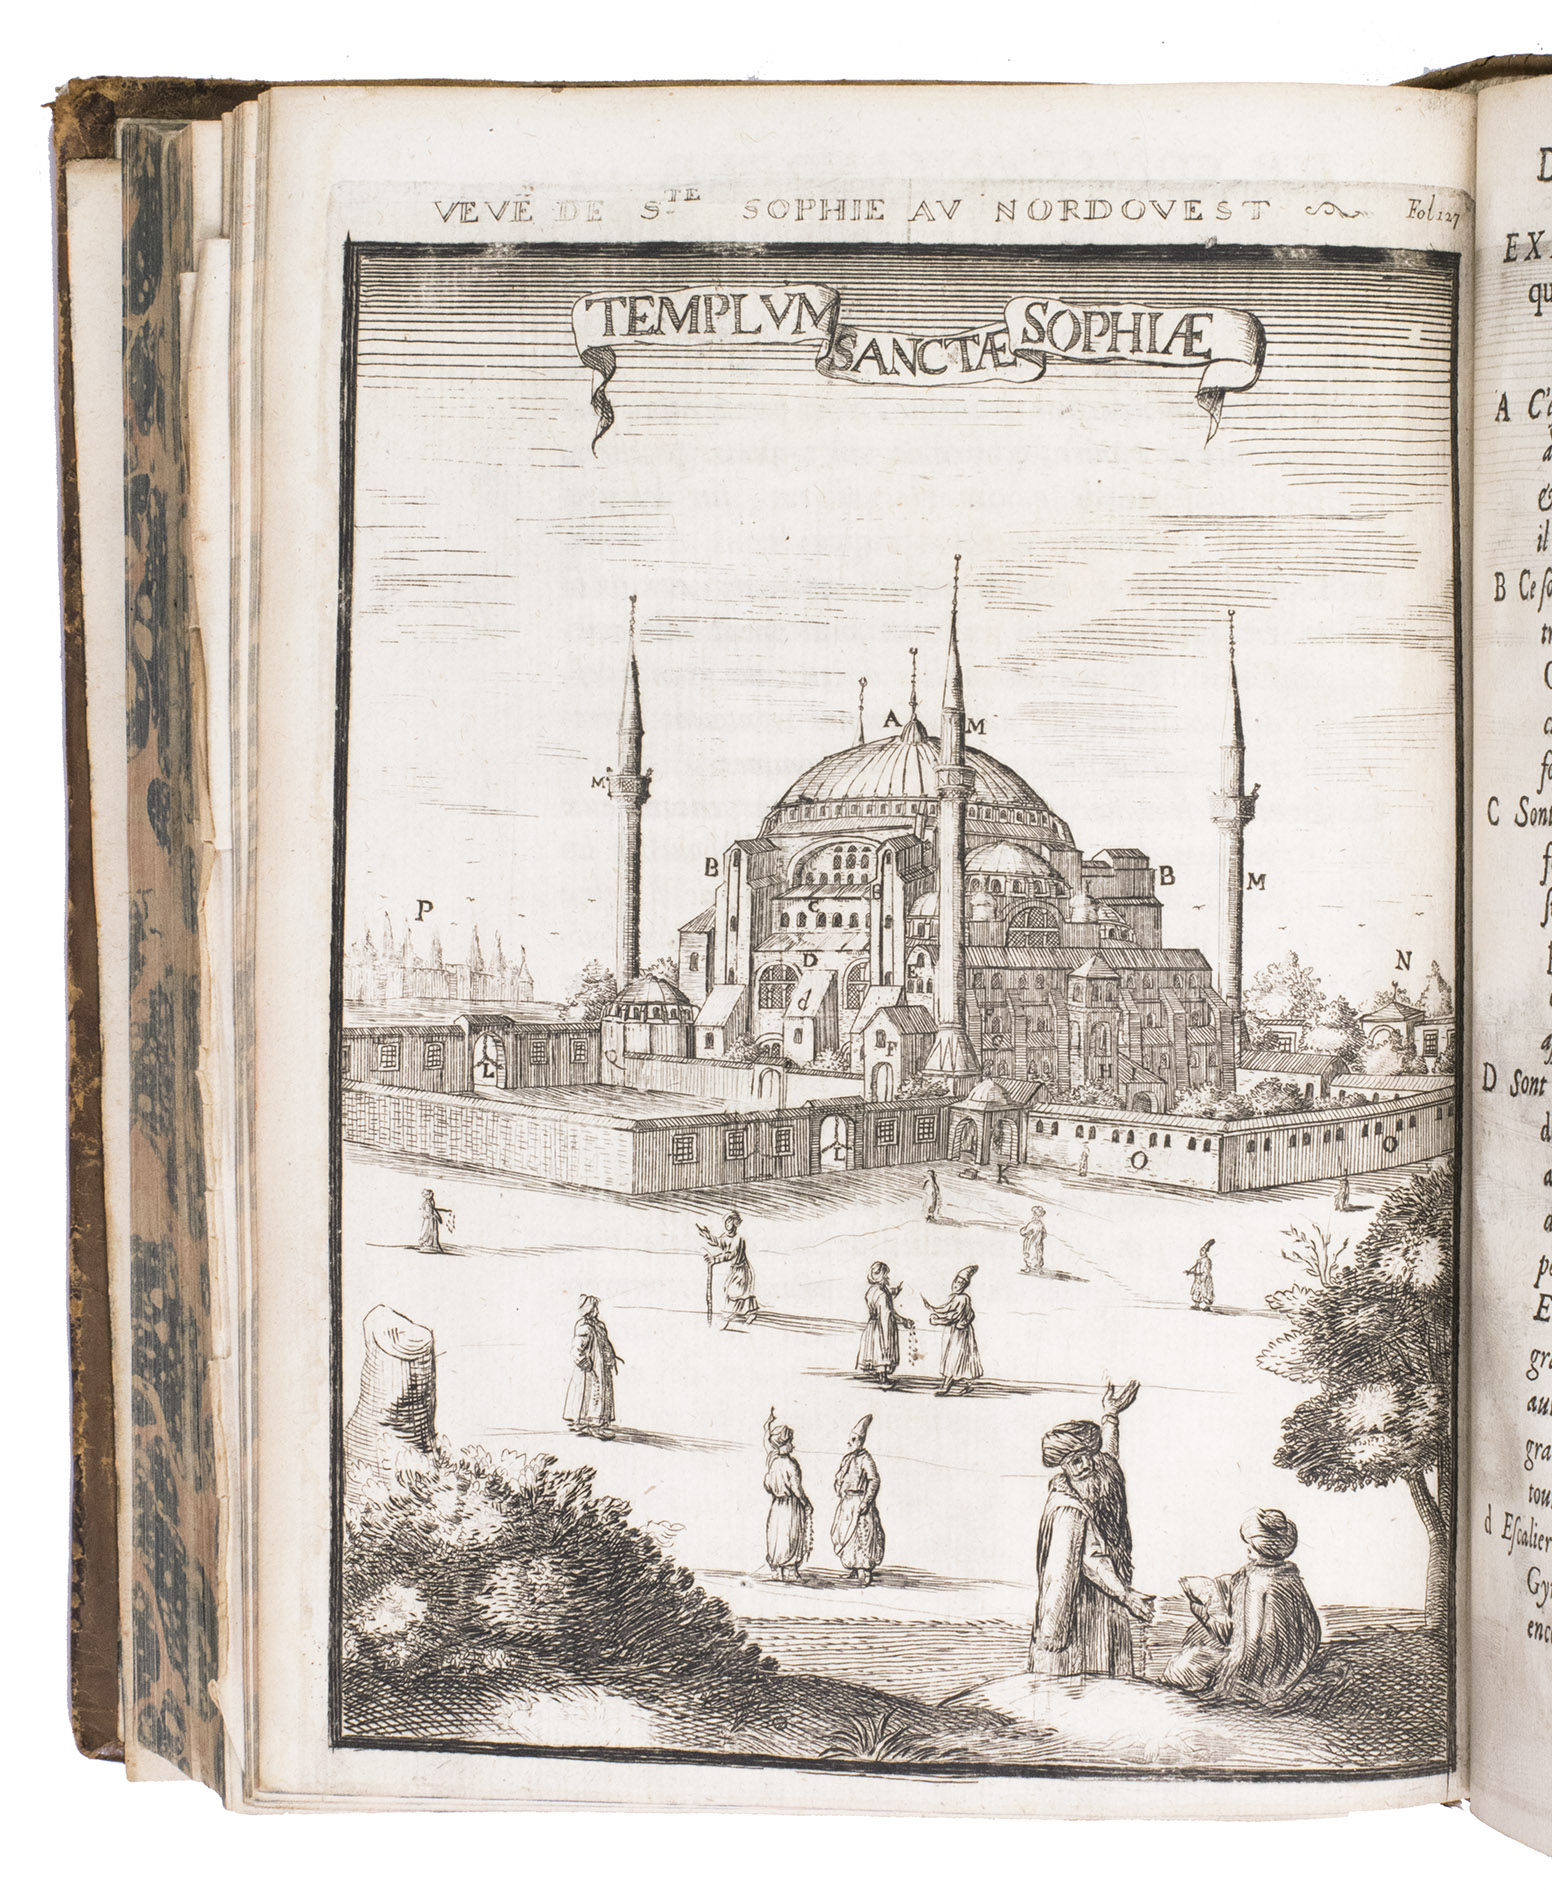 VEVË DE S.TE SOPHIE AV NORDOVEST Fol 127
TEMPLVM SANCTÆ SOPHIÆ
A M
M
B B M
P C
D N
d E
F G
F
L H
L K O O
D
EX
qu
A C'e
a
&
il
B Ce ſo
tr
C
c
fo
C Sont
f
ſ
D Sont
d
a
a
pe
E
gra
au
gra
tou
d Eſcalier
Gy
enc